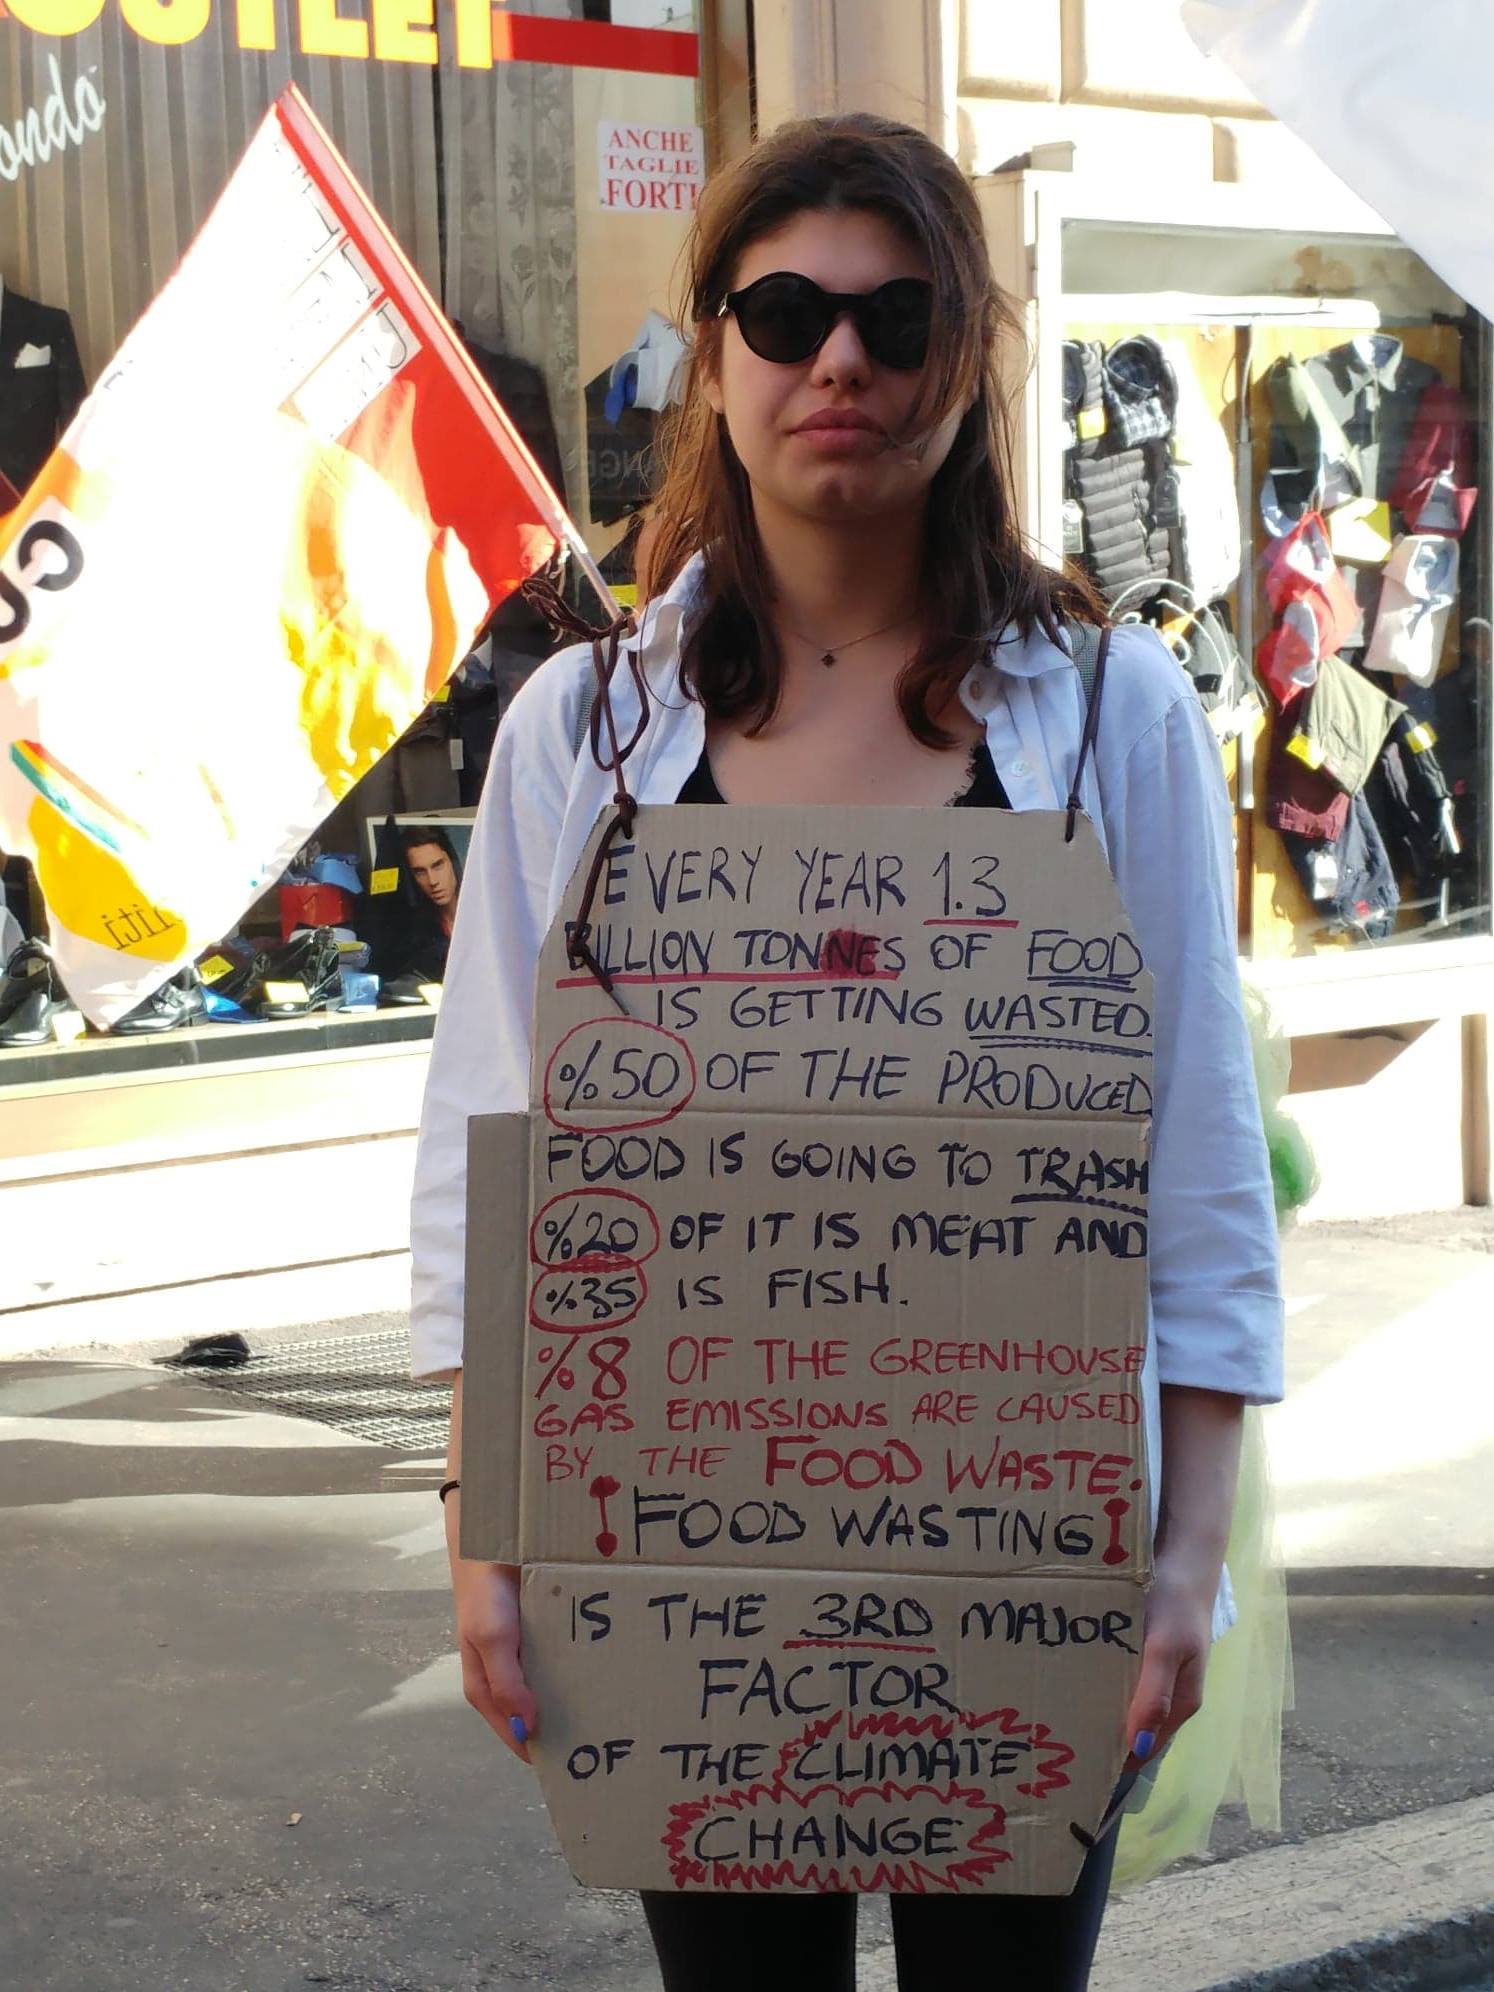 OUTLET
ondo
ANCHE
TAGLIE
FORTI
EVERY YEAR 1.3
BILLION TONNES OF FOOD
IS GETTING WASTED.
%50 OF THE PRODUCED
FOOD IS GOING TO TRASH
%20 OF IT IS MEAT AND
%35 IS FISH.
%8 OF THE GREENHOUSE
GAS EMISSIONS ARE CAUSED
BY THE FOOD WASTE.
! FOOD WASTING !
IS THE 3RD MAJOR
FACTOR
OF THE CLIMATE
CHANGE